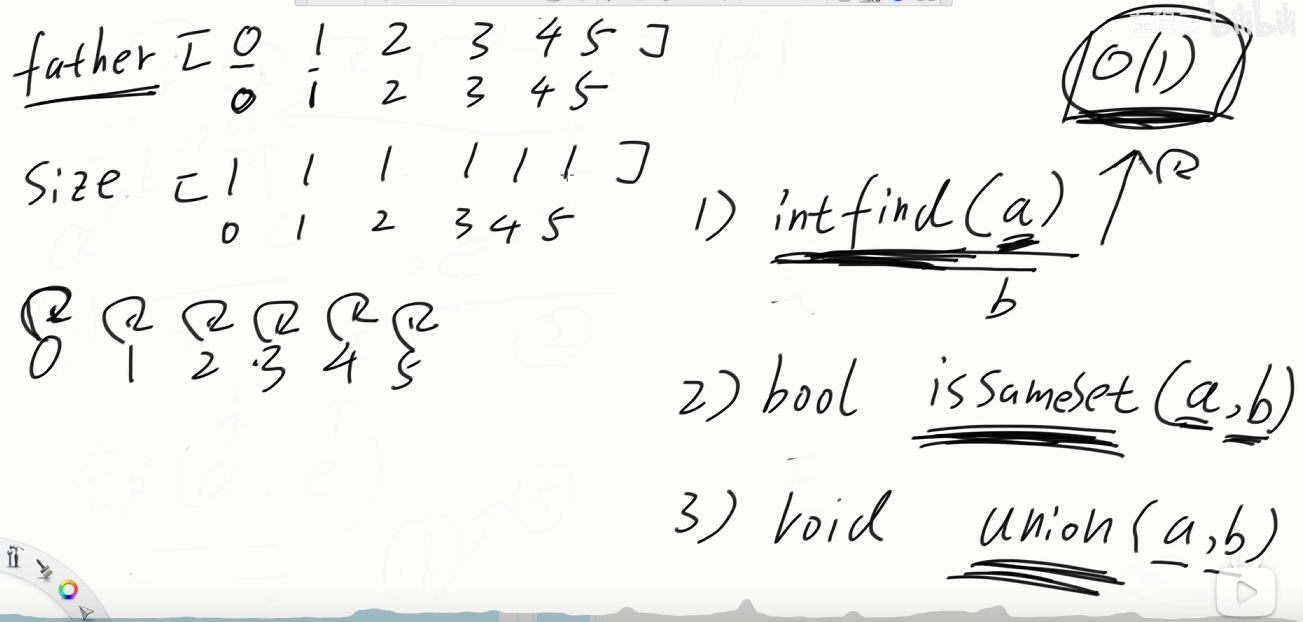 father [ 0 1 2 3 4 5 ]
0 1 2 3 4 5
Size [ 1 1 1 1 1 1 ]
0 1 2 3 4 5
0 1 2 3 4 5
bilibili
O(1)
1) int find(a)
b
2) bool isSameSet(a,b)
3) void union(a,b)